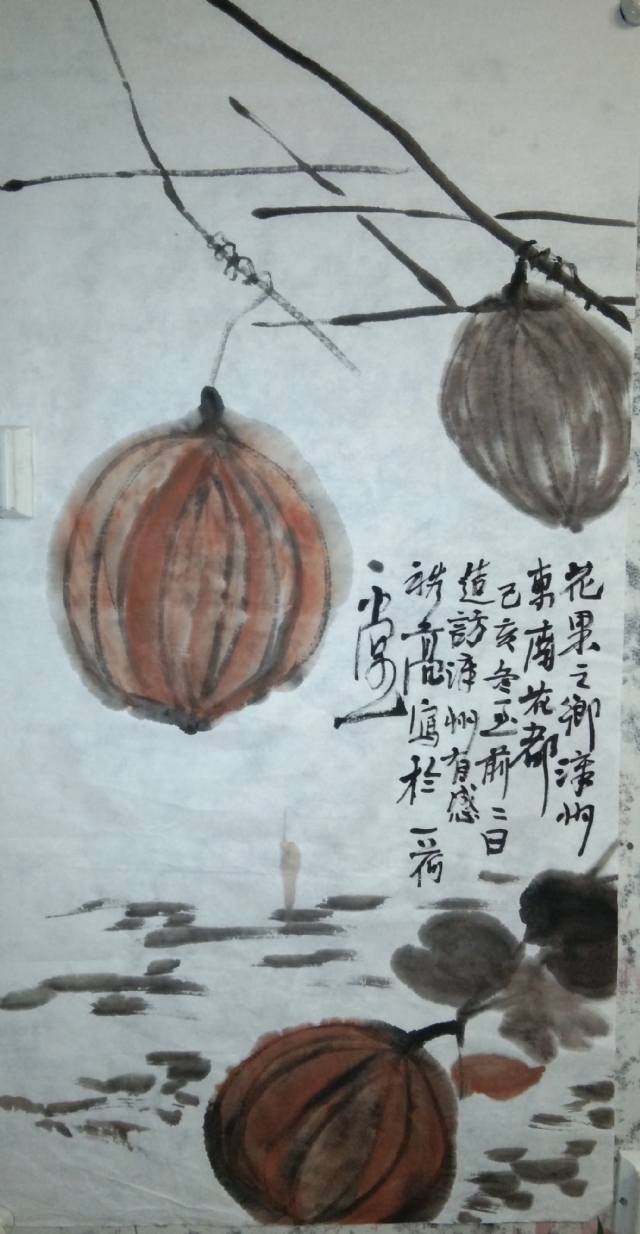 花果之乡漳州
東南花都
己亥冬至前二日
造訪漳州有感
志高寫於一荷